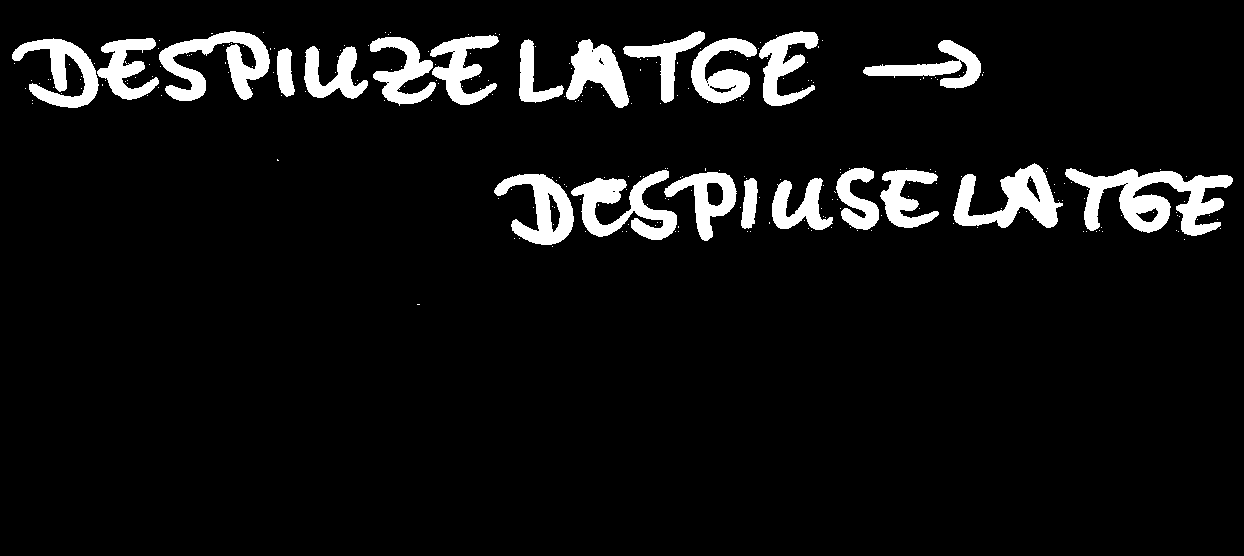 DESPIUZELATGE →
DESPIUSELATGE